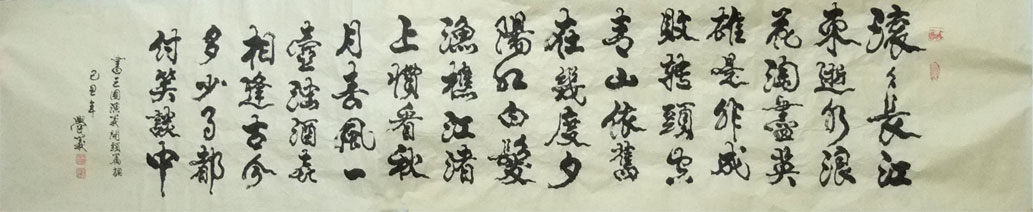 滚々長江
東逝水浪
花淘盡英
雄是非成
敗轉頭空
青山依舊
在幾度夕
陽紅白髮
漁樵江渚
上慣看秋
月春風一
壺濁酒喜
相逢古今
多少事都
付笑談中
書三國演義開
己丑年